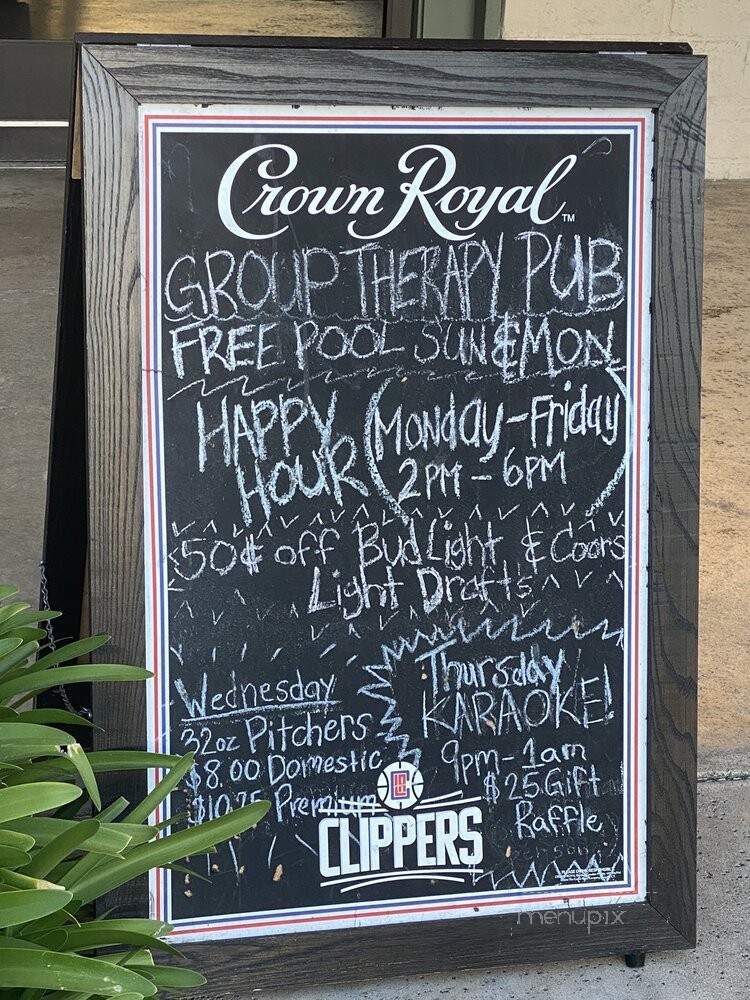 Crown Royal™
GROUP THERAPY PUB
FREE POOL SUN & MON
HAPPY HOUR (Monday-Friday 2PM-6PM)
50¢ off Bud Light & Coors
Light Drafts
Wednesday
32oz Pitchers
$8.00 Domestic
$10.75 Premium
Thursday
KARAOKE!
9pm-1am
$25 Gift
Raffle
CLIPPERS
menupix